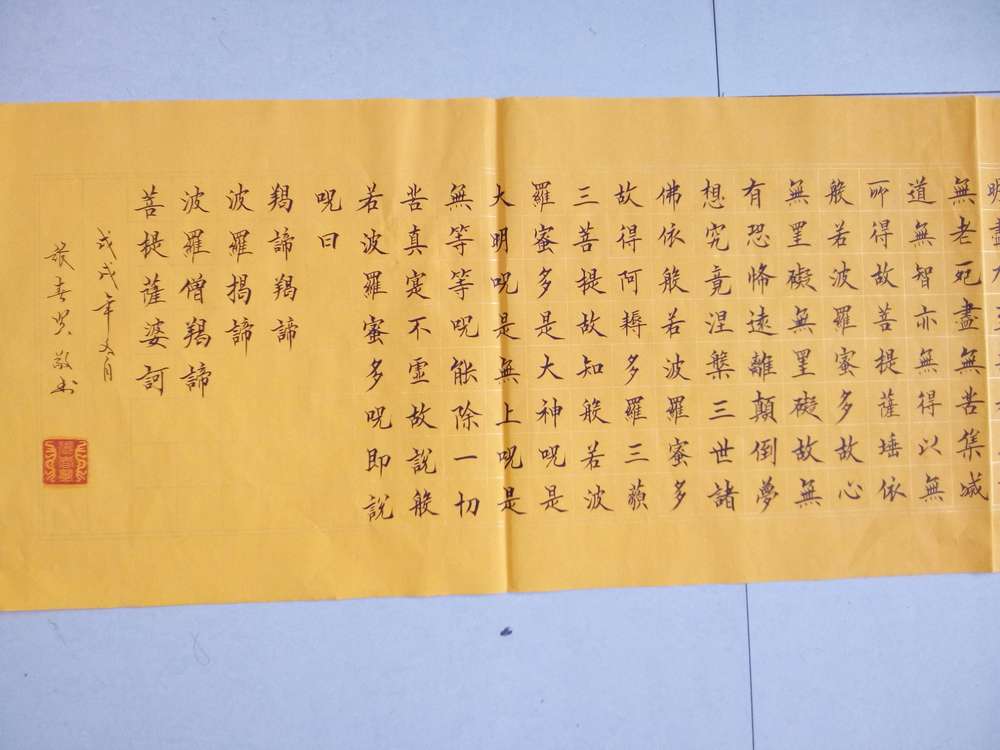 無老死盡無苦集滅
道無智亦無得以無
所得故菩提薩埵依
般若波羅蜜多故心
無罣礙無罣礙故無
有恐怖遠離顛倒夢
想究竟涅槃三世諸
佛依般若波羅蜜多
故得阿耨多羅三藐
三菩提故知般若波
羅蜜多是大神呪是
大明呪是無上呪是
無等等呪能除一切
苦真寔不虛故說般
若波羅蜜多呪即說
呪曰
羯諦羯諦
波羅揭諦
波羅僧羯諦
菩提薩婆訶
戊戌年五月
春 敬书